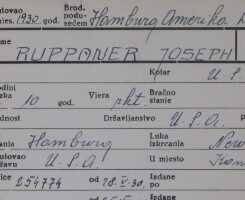 tovao
mjes. 1930 god. Brod. podu- zećem Hamburg Amerika
me RUPPANER JOSEPH
Kotar U. S.
odini
ka 10 god. Vjera rkt. Bračno stanje
dnost Državljanstvo U. S. A.
anja Hamburg Luka iskrcanja New
utovao
žavu U. S. A. U mjesto
ice 254774 od 28. V. 30. Izdane po
od Izdane